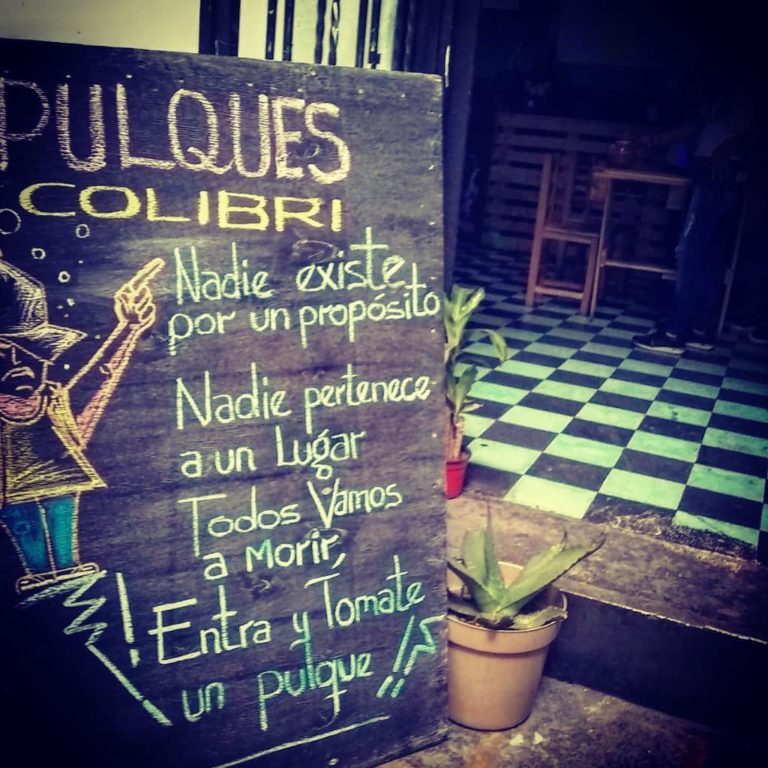 PULQUES
COLIBRI
Nadie existe
por un propósito
Nadie pertenece
a un Lugar
Todos Vamos
a Morir,
¡Entra y Tomate
un pulque!!